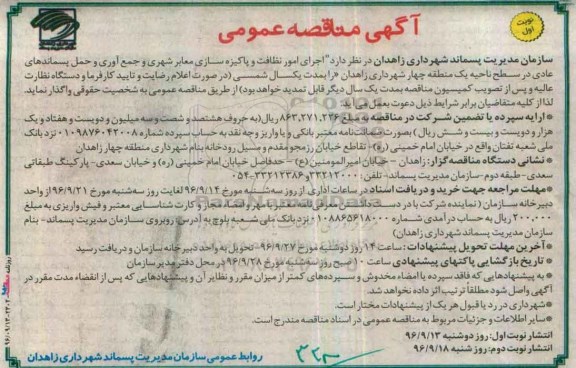 آگهی مناقصه عمومی
نوبت اول
سازمان مدیریت پسماند شهرداری زاهدان در نظر دارد "اجرای امور نظافت و پاکیزه سازی معابر شهری و جمع آوری و حمل پسماندهای
عادی در سطح ناحیه یک منطقه چهار شهرداری زاهدان" را بمدت یکسال شمسی (در صورت اعلام رضایت و تایید کارفرما و دستگاه نظارت
عالیه و پس از تصویب کمیسیون مناقصه بمدت یک سال دیگر قابل تمدید خواهد بود) از طریق مناقصه عمومی به شخصیت حقوقی واگذار نماید.
لذا از کلیه متقاضیان برابر شرایط ذیل دعوت بعمل می‌آید
* ارایه سپرده یا تضمین شرکت در مناقصه به مبلغ ۸۶۳,۲۷۱,۲۳۶ ریال (به حروف هشتصد و شصت وسه میلیون و دویست و هفتاد و یک
هزار و دویست و بیست و شش ریال) بصورت ضمانتنامه معتبر بانکی و یا واریز وجه نقد به حساب سپرده شماره ۰۱۰۹۸۷۶۰۴۲۰۰۸ نزد بانک
ملی شعبه تفتان واقع در خیابان امام خمینی (ره)- تقاطع خیابان رزمجو مقدم و مسیل رودخانه بنام شهرداری منطقه چهار زاهدان
* نشانی دستگاه مناقصه گزار: زاهدان - خیابان امیرالمومنین (ع) - حدفاصل خیابان امام خمینی (ره) و خیابان سعدی- پارکینگ طبقاتی
سعدی-طبقه دوم-سازمان مدیریت پسماند-تلفن: ۳۳۲۱۲۰۰۰ و ۳۳۲۱۲۳۸۶-۰۵۴
* مهلت مراجعه جهت خرید و دریافت اسناد در ساعات اداری از روز سه شنبه مورخ ۹۶/۹/۱۴ لغایت روز سه شنبه مورخ ۹۶/۹/۲۱ از واحد
دبیرخانه سازمان (نماینده شرکت با در دست داشتن معرفی نامه با امضاء مجاز و مهر و کارت شناسایی معتبر و فیش واریزی به مبلغ
۲۰۰,۰۰۰ ریال به حساب درآمدی شماره ۰۱۰۸۸۶۵۶۱۸۰۰۰ نزد بانک ملی شعبه بلوچ به آدرس: روبروی سازمان مدیریت پسماند- بنام
سازمان مدیریت پسماند شهرداری زاهدان)
* آخرین مهلت تحویل پیشنهادات: ساعت ۱۴ روز دوشنبه مورخ ۹۶/۹/۲۷- تحویل به واحد دبیرخانه سازمان و دریافت رسید
* تاریخ بازگشایی پاکتهای پیشنهادی ساعت ۱۰ صبح روز سه شنبه مورخ ۹۶/۹/۲۸ در محل دفتر مدیر سازمان
* به پیشنهادهایی که فاقد سپرده یا امضاء مخدوش و سپرده‌های کمتر از میزان مقرر و نظایر آن و پیشنهادهایی که پس از انقضاء مدت مقرر در
آگهی واصل شود مطلقاً ترتیب اثر داده نخواهد شد.
* شهرداری در رد یا قبول هر یک از پیشنهادات مختار است.
* سایر اطلاعات و جزئیات مربوط به مناقصه عمومی در اسناد مناقصه مندرج است.
انتشار نوبت اول: روز دوشنبه ۹۶/۹/۱۳
انتشار نوبت دوم: روز شنبه ۹۶/۹/۱۸
روابط عمومی سازمان مدیریت پسماند شهرداری زاهدان